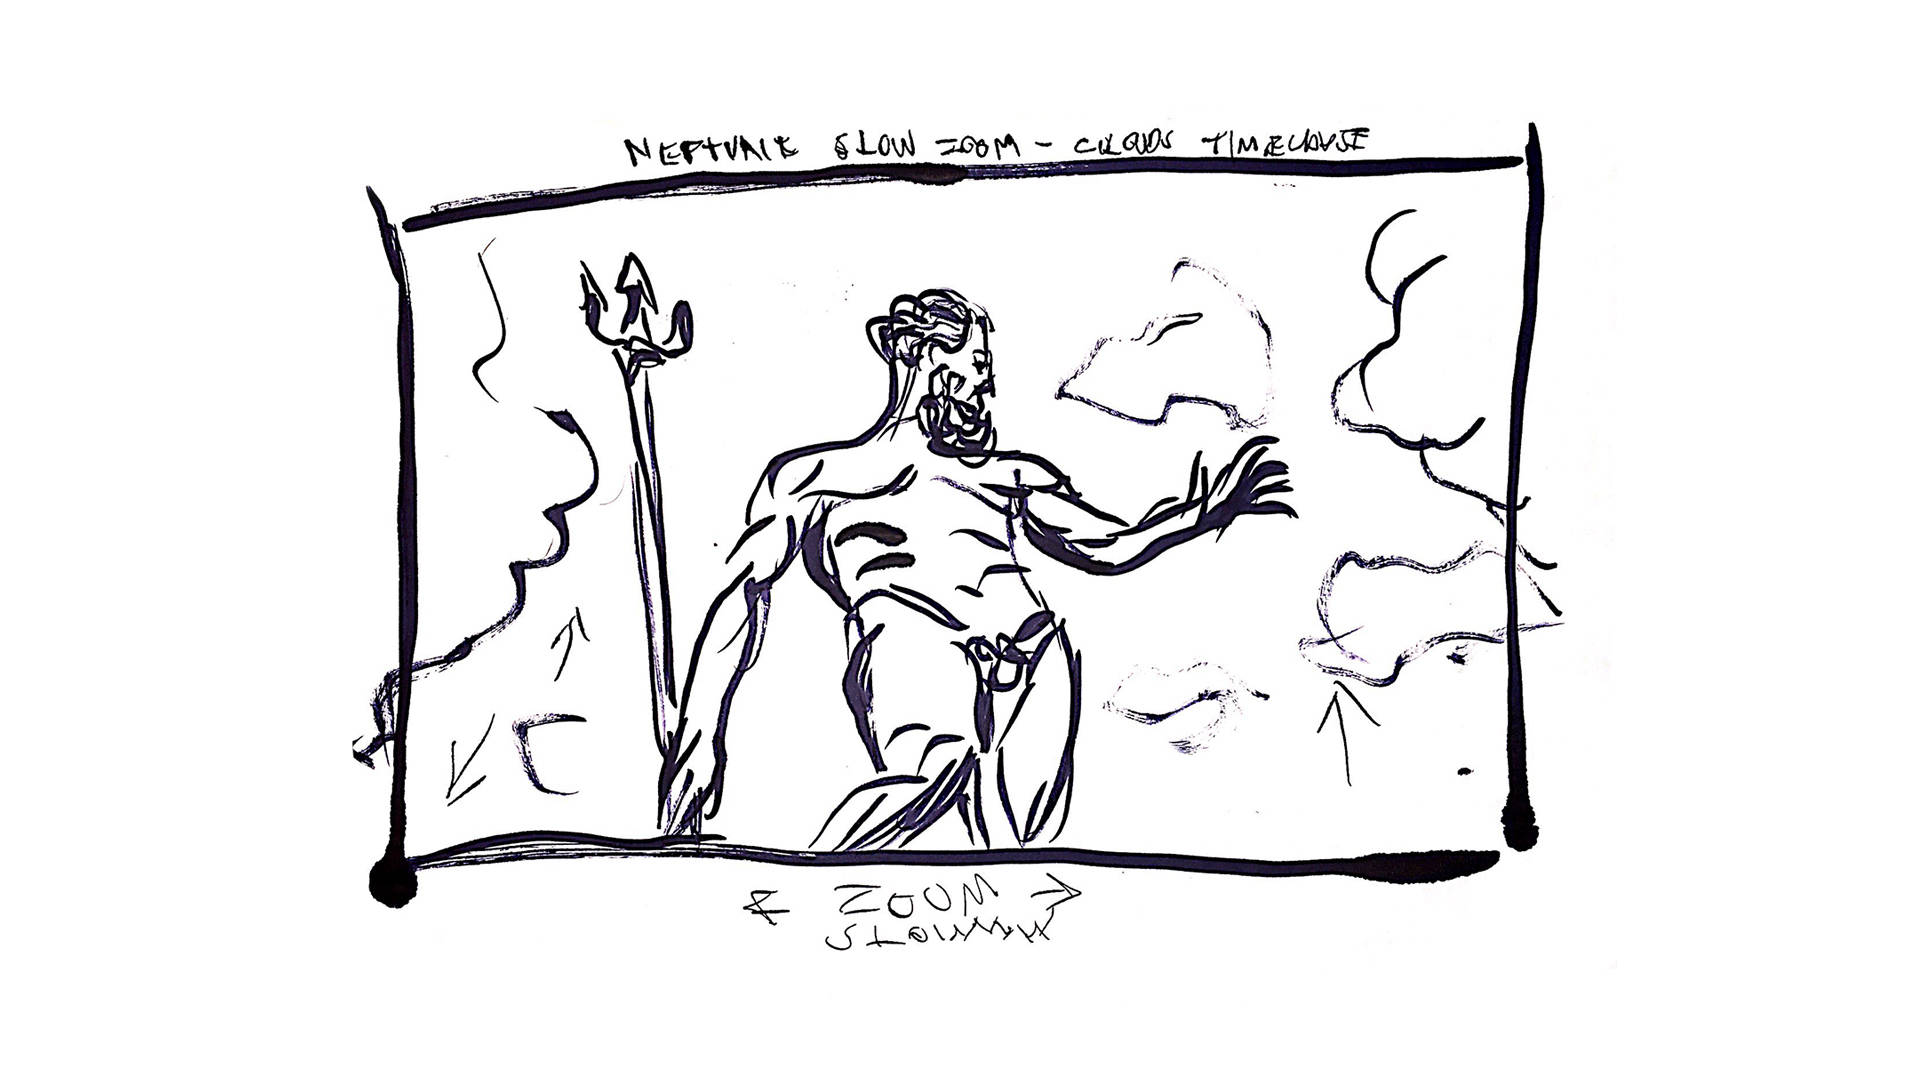 NEPTUNE SLOW ZOOM - CLOUDS TIMELAPSE
ZOOM